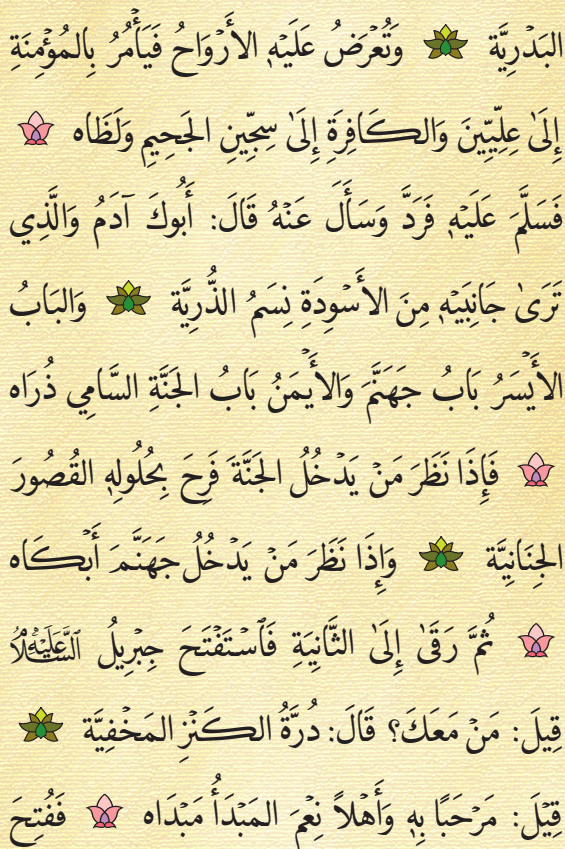 البَدْرِيَّة وَتُعْرَضُ عَلَيْهِ الأَرْوَاحُ فَيَأْمُرُ بِالمُؤْمِنَةِ
إِلَىٰ عِلِّيِّينَ وَالكَافِرَةِ إِلَىٰ سِجِّينِ الجَحِيمِ وَلَظَاه
فَسَلَّمَ عَلَيْهِ فَرَدَّ وَسَأَلَ عَنْهُ قَالَ: أَبُوكَ آدَمُ وَالَّذِي
تَرَىٰ جَانِبَيْهِ مِنَ الأَسْوِدَةِ نِسَمُ الذُّرِيَّة وَالبَابُ
الأَيْسَرُ بَابُ جَهَنَّمَ وَالأَيْمَنُ بَابُ الجَنَّةِ السَّامِي ذُرَاه
فَإِذَا نَظَرَ مَنْ يَدْخُلُ الجَنَّةَ فَرِحَ بِحُلُولِهِ القُصُورَ
الجِنَانِيَّة وَإِذَا نَظَرَ مَنْ يَدْخُلُ جَهَنَّمَ أَبْكَاه
ثُمَّ رَقَىٰ إِلَىٰ الثَّانِيَةِ فَٱسْتَفْتَحَ جِبْرِيلُ عَلَيْهِ السَّلَامُ
قِيلَ: مَنْ مَعَكَ؟ قَالَ: دُرَّةُ الكَنْزِ المَخْفِيَّة
قِيْلَ: مَرْحَبًا بِهِ وَأَهْلاً نِعْمَ المَبْدَأُ مَبْدَاه فَفُتِحَ